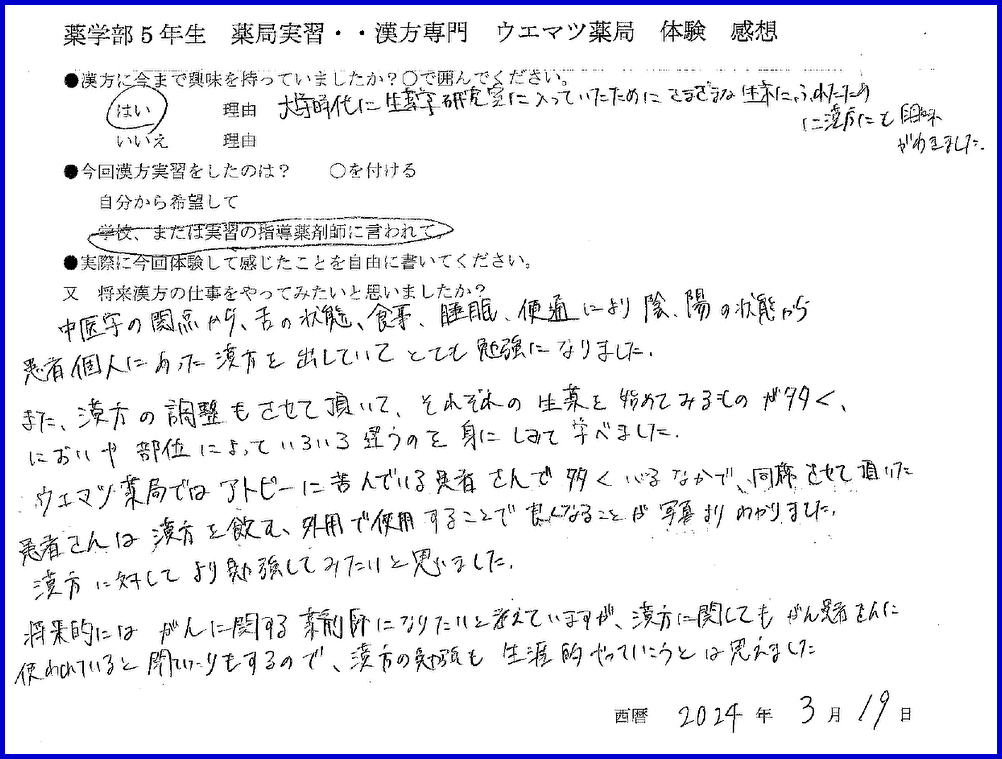 薬学部5年生　薬局実習・・漢方専門　ウエマツ薬局　体験　感想
●漢方に今まで興味を持っていましたか？○で囲んでください。
はい　理由　大学時代に生薬学研究室に入っていたためにさまざまな生薬にふれたため
に漢方にも興味
がわきました。
いいえ　理由
●今回漢方実習をしたのは？　○を付ける
自分から希望して
学校、または実習の指導薬剤師に言われて。
●実際に今回体験して感じたことを自由に書いてください。
又　将来漢方の仕事をやってみたいと思いましたか？
中医学の関点から、舌の状態、食事、睡眠、便通により陰、陽の状態から
患者個人にあった漢方を出していてとても勉強になりました。
また、漢方の調整もさせて頂いて、それぞれの生薬を始めてみるものが多く、
においや部位によっていろいろ違うのを身にしみて学べました。
ウエマツ薬局ではアトピーに苦んでいる患者さんで多くいるなかで、同席させて頂いた
患者さんは漢方を飲む、外用で使用することで良くなることが写真よりわかりました。
漢方に対してより勉強してみたいと思いました。
将来的にはがんに関する薬剤師になりたいと考えていますが、漢方に関してもがん患者さんに
使われていると聞いたりもするので、漢方の勉強も生涯的やっていこうとは思えました
西暦　2024年　3月19日